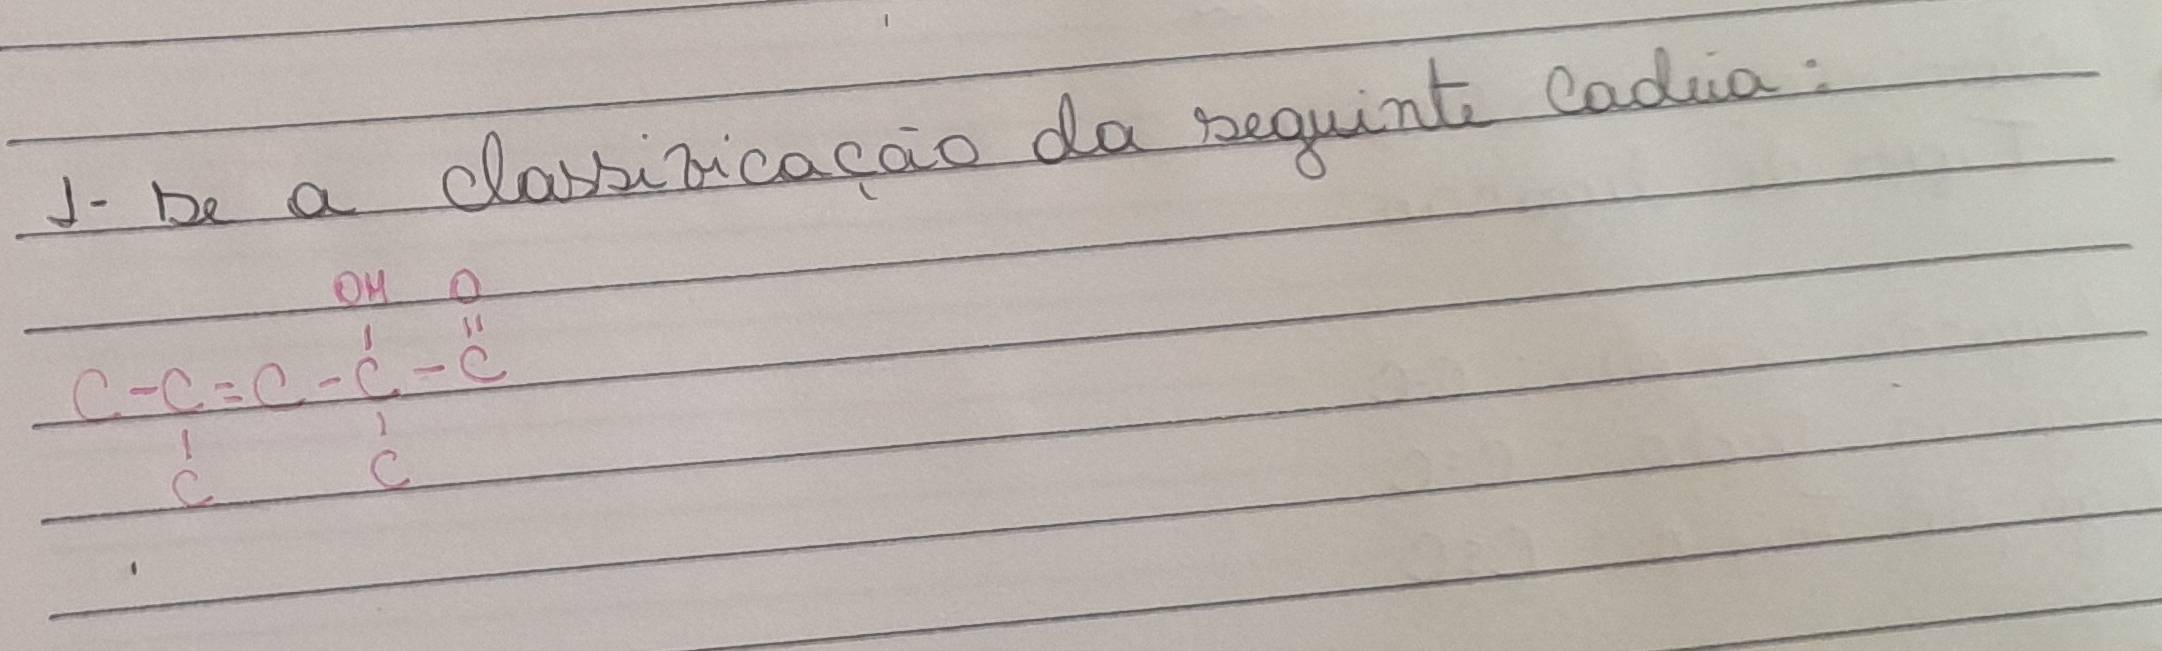 1- De a classificação da seguinte cadeia:
OH O
| ||
C-C=C-C-C
| |
C C